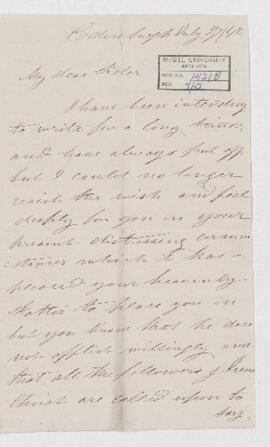 Edinburgh July 3/48
McGILL UNIVERSITY
ARCHIVES
ACC. NO. 1421B
REF. 4/5
My dear Sister
I have been intending
to write for a long time
and have always put off
but I could no longer
resist the wish and feel
deeply for you in your
present distressing circum
stances which it has
pleased your heavenly
Father to place you in
but you know that he does
not afflict willingly and
that all the followers of Jesus
Christ are called upon to
say